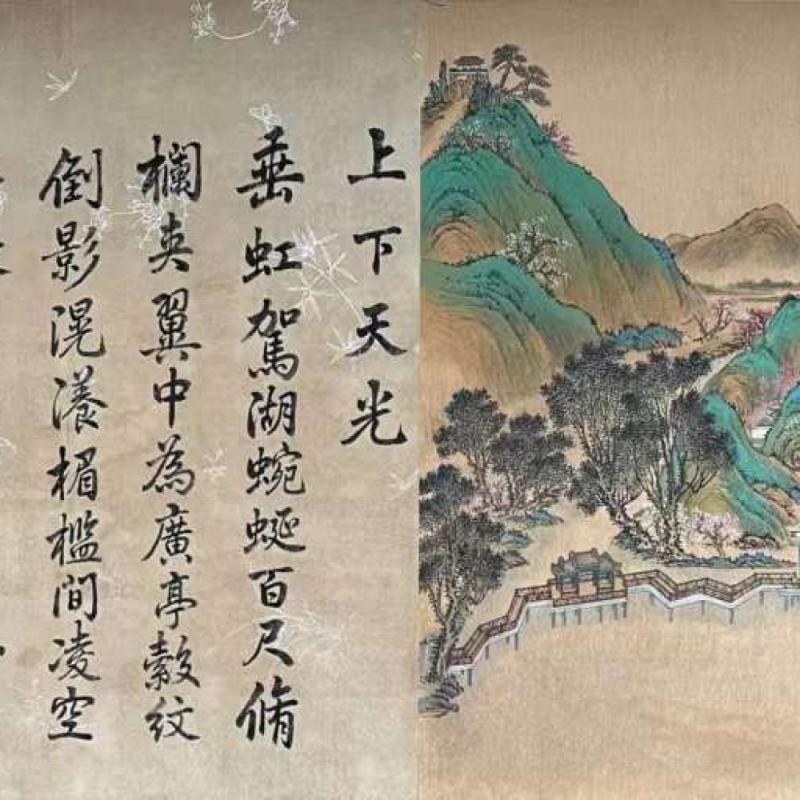 上下天光
垂虹駕湖蜿蜒百尺脩
欄夾翼中為廣亭縠紋
倒影滉瀁楣檻間凌空